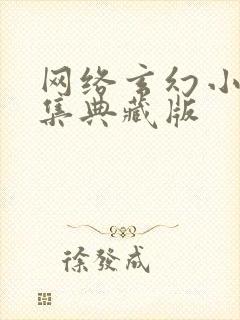 网络玄幻小
集典藏版
徐發成